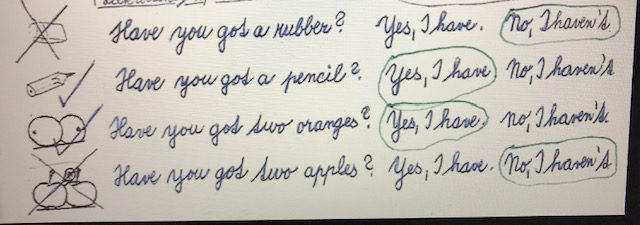 Have you got a rubber? Yes, I have. No, I haven't.
Have you got a pencil? Yes, I have No, I haven't.
Have you got two oranges? Yes, I have. no, I haven't.
Have you got two apples? Yes, I have. No, I haven't.